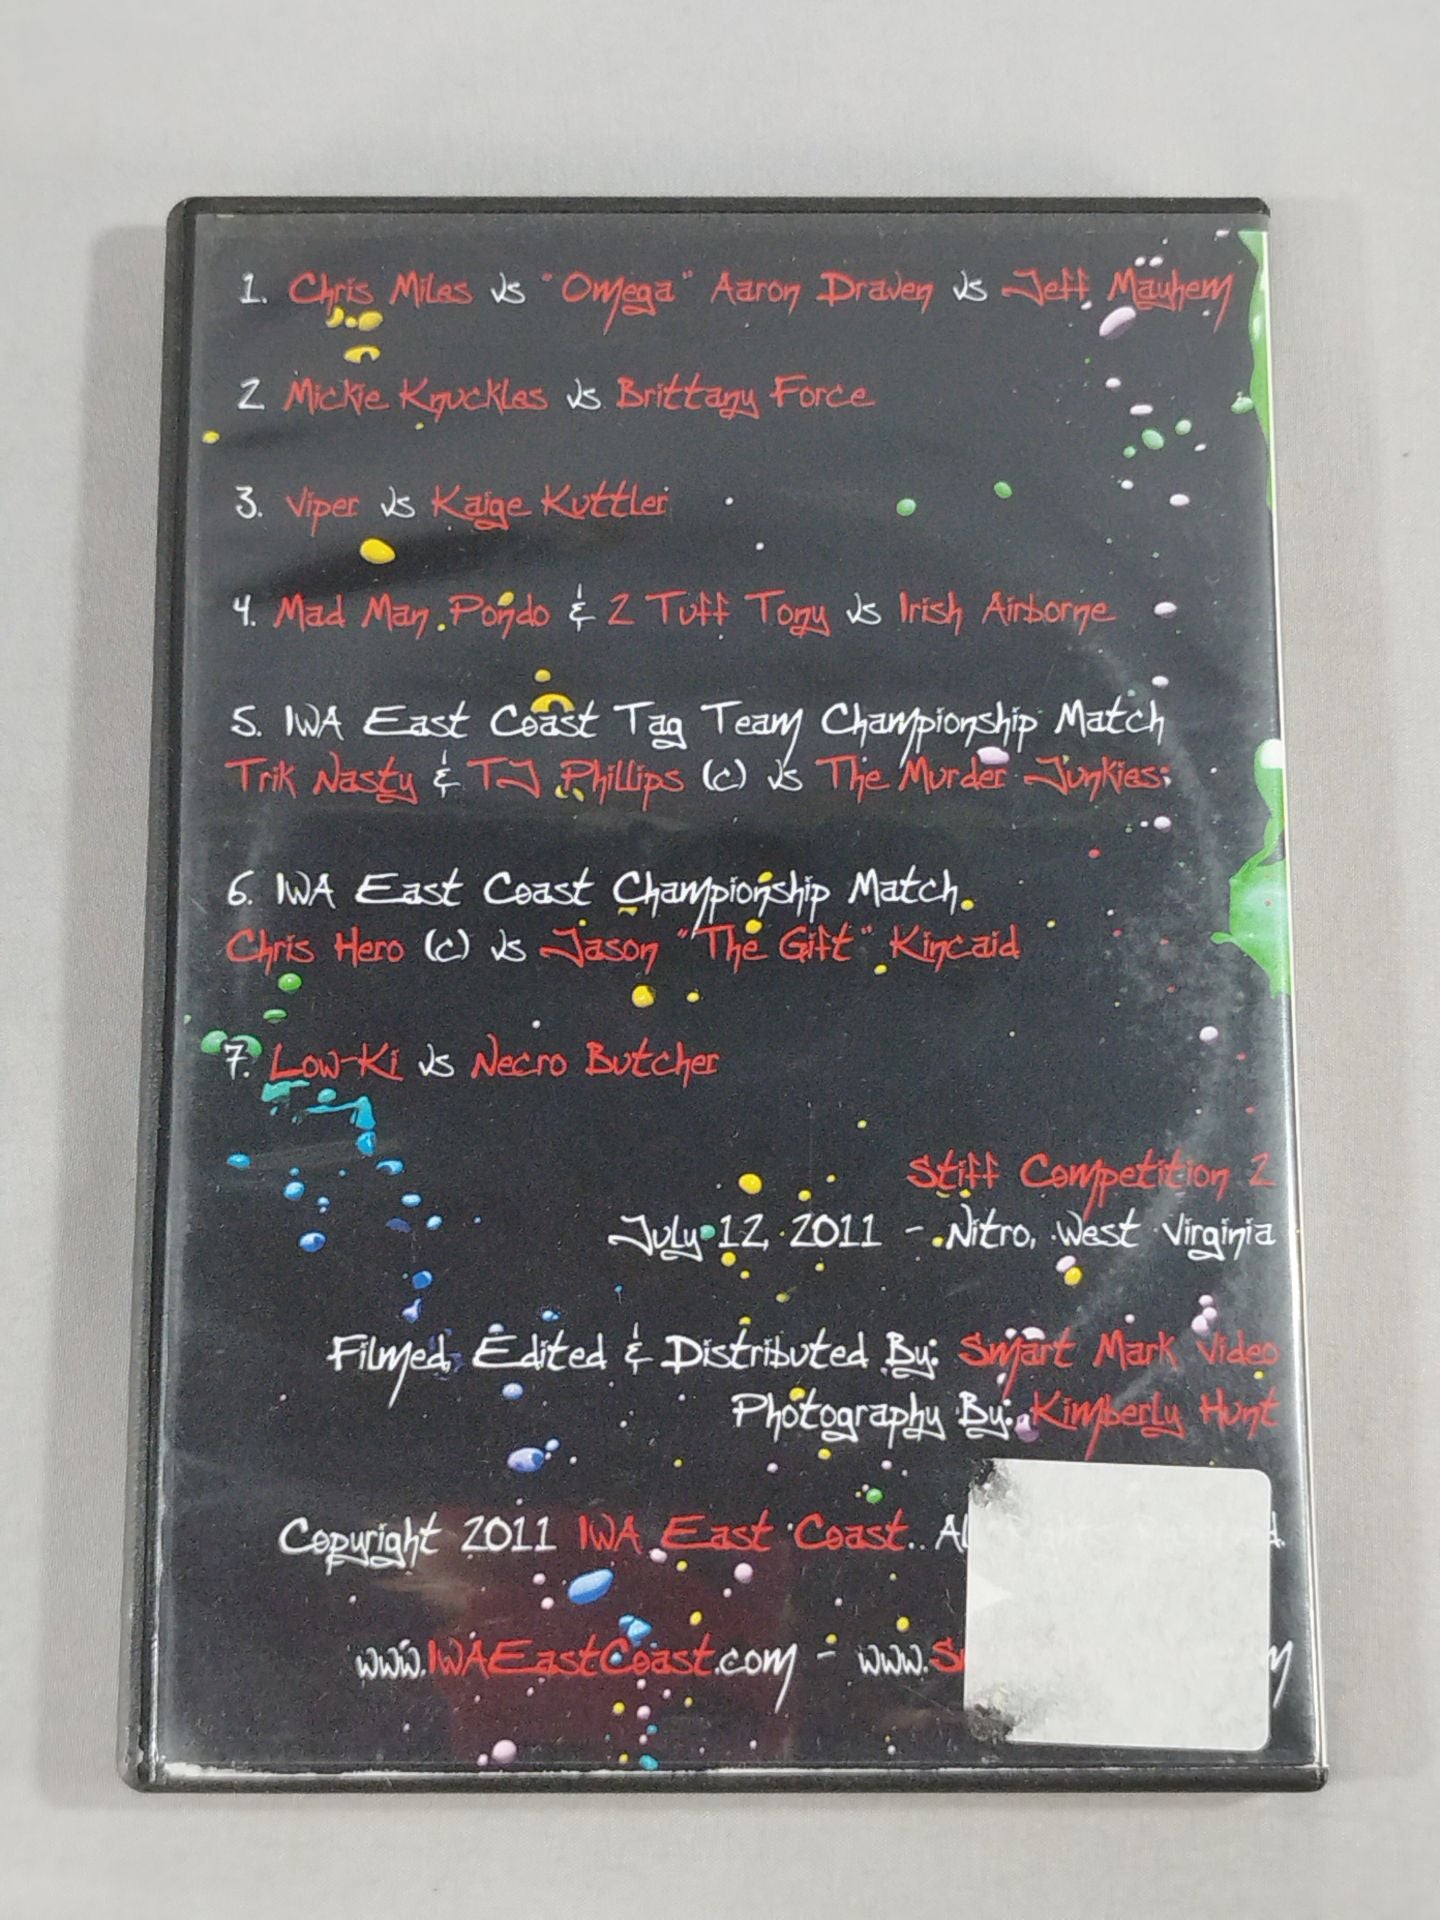 1. Chris Miles vs "Omega" Aaron Draven vs Jeff Mayhem
2 Mickie Knuckles vs Brittany Force
3. Viper vs Kaige Kuttler
4. Mad Man Pondo & 2 Tuff Tony vs Irish Airborne
5. IWA East Coast Tag Team Championship Match
Trik Nasty & TJ Phillips (c) vs The Murder Junkies
6. IWA East Coast Championship Match
Chris Hero (c) vs Jason "The Gift" Kincaid
7. Low-Ki vs Necro Butcher
Stiff Competition 2
July 12, 2011 - Nitro, West Virginia
Filmed, Edited & Distributed By: Smart Mark Video
Photography By: Kimberly Hunt
Copyright 2011 IWA East Coast.
www.IWAEastCoast.com -